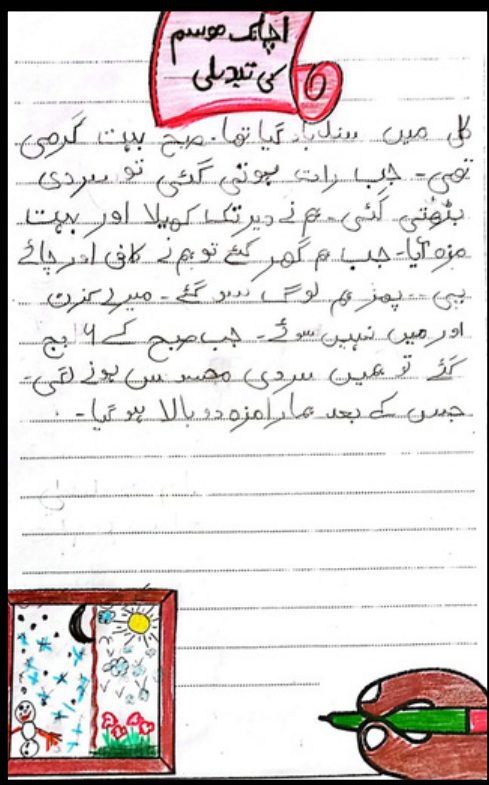 اچانک موسم
کی تبدیلی
کل میں سندباد گیا تھا۔ صبح بہت گرمی
تھی۔ جب رات ہوتی گئی تو سردی
بڑھتی گئی۔ ہم نے دیر تک کھیلا اور بہت
مزہ آیا۔ جب ہم گھر گئے تو ہم نے کافی اور چائے
پی۔۔ پھر ہم لوگ سو گئے۔ میرے کزن
اور میں نہیں سوئے۔ جب صبح کے ۴ بج
گئے تو ہمیں سردی محسوس ہونے لگی۔
جس کے بعد ہمارا مزہ دوبالا ہو گیا۔